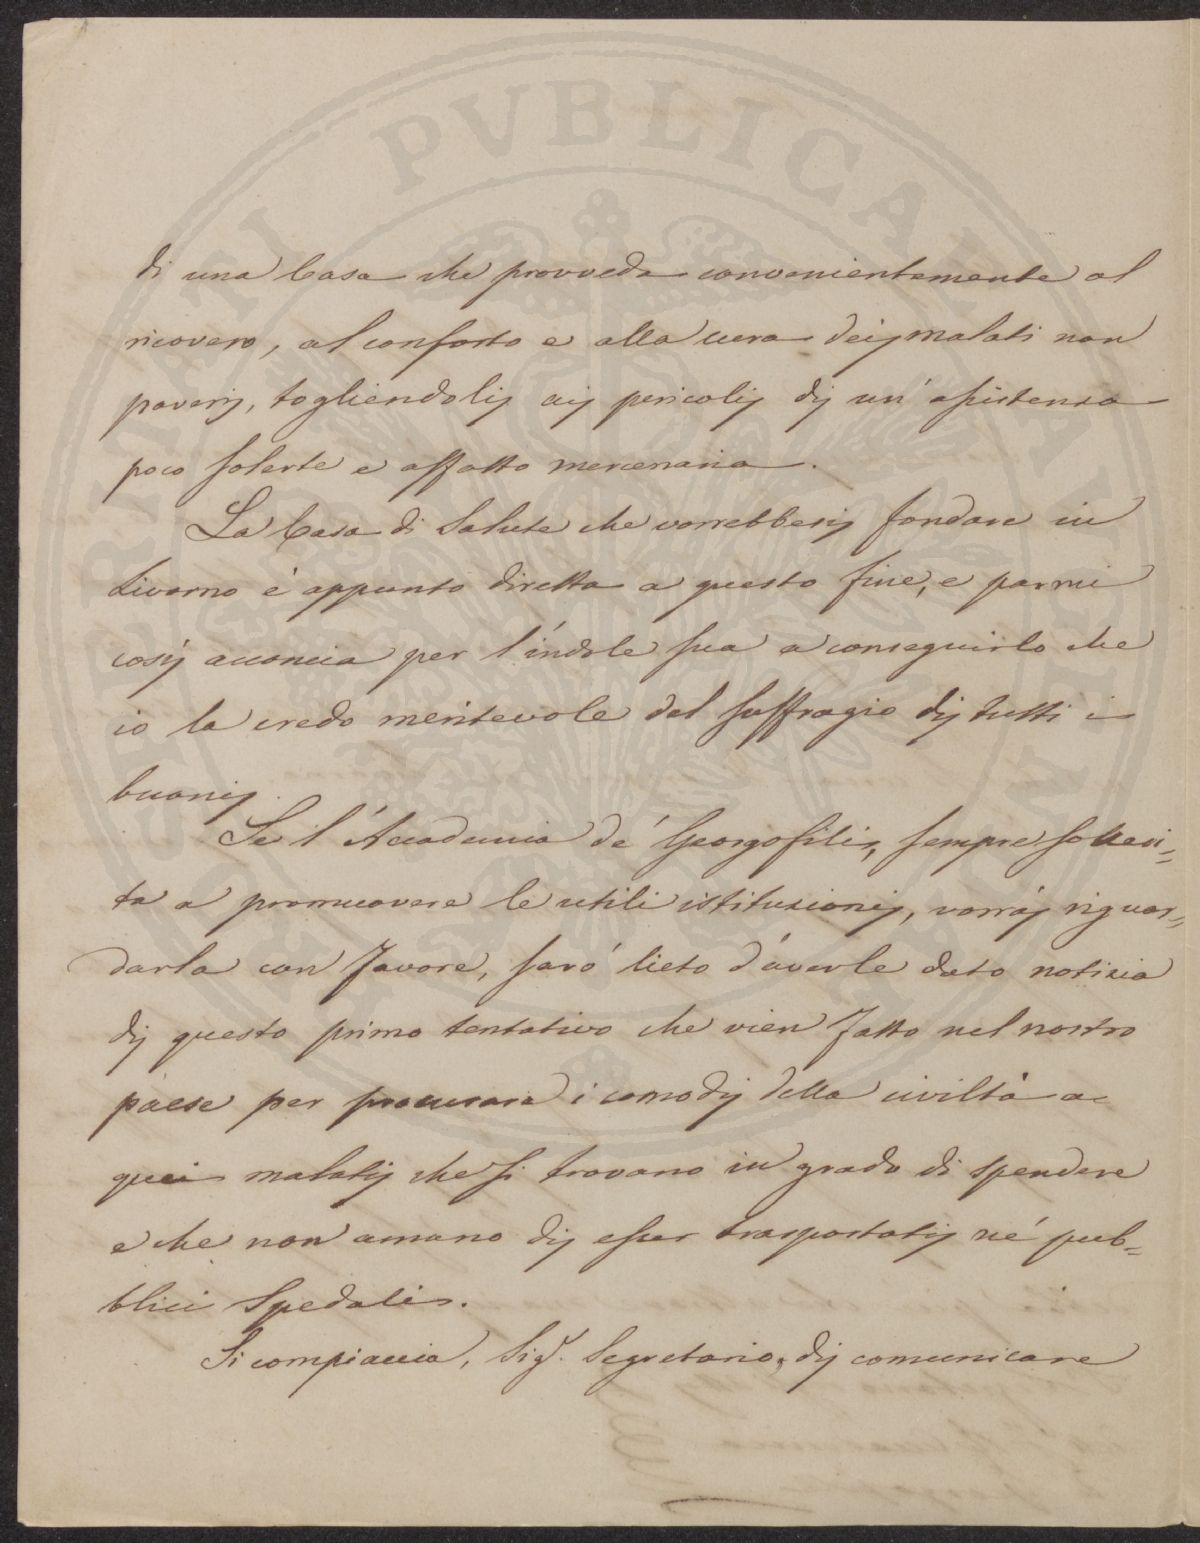 di una Casa che provveda convenientemente al
ricovero, al conforto e alla cura dei malati non
poveri, togliendoli ai pericoli di un' assistenza
poco solerte e affatto mercenaria.
La Casa di Salute che vorrebbesi fondare in
Livorno è appunto diretta a questo fine, e parmi
così acconcia per l'indole sua a conseguirlo che
io la credo meritevole del suffragio di tutti i
buoni.
Se l'Accademia de' Georgofili, sempre solleci-
ta a promuovere le utili istituzioni, vorrà riguar-
darla con favore, sarò lieto d'averle dato notizia
di questo primo tentativo che vien fatto nel nostro
paese per procurare i comodi della civiltà a
quei malati che si trovano in grado di spendere
e che non amano di esser trasportati nè pub-
blici Spedali.
Si compiaccia, Sigr. Segretario, di comunicare
PVBLICAE